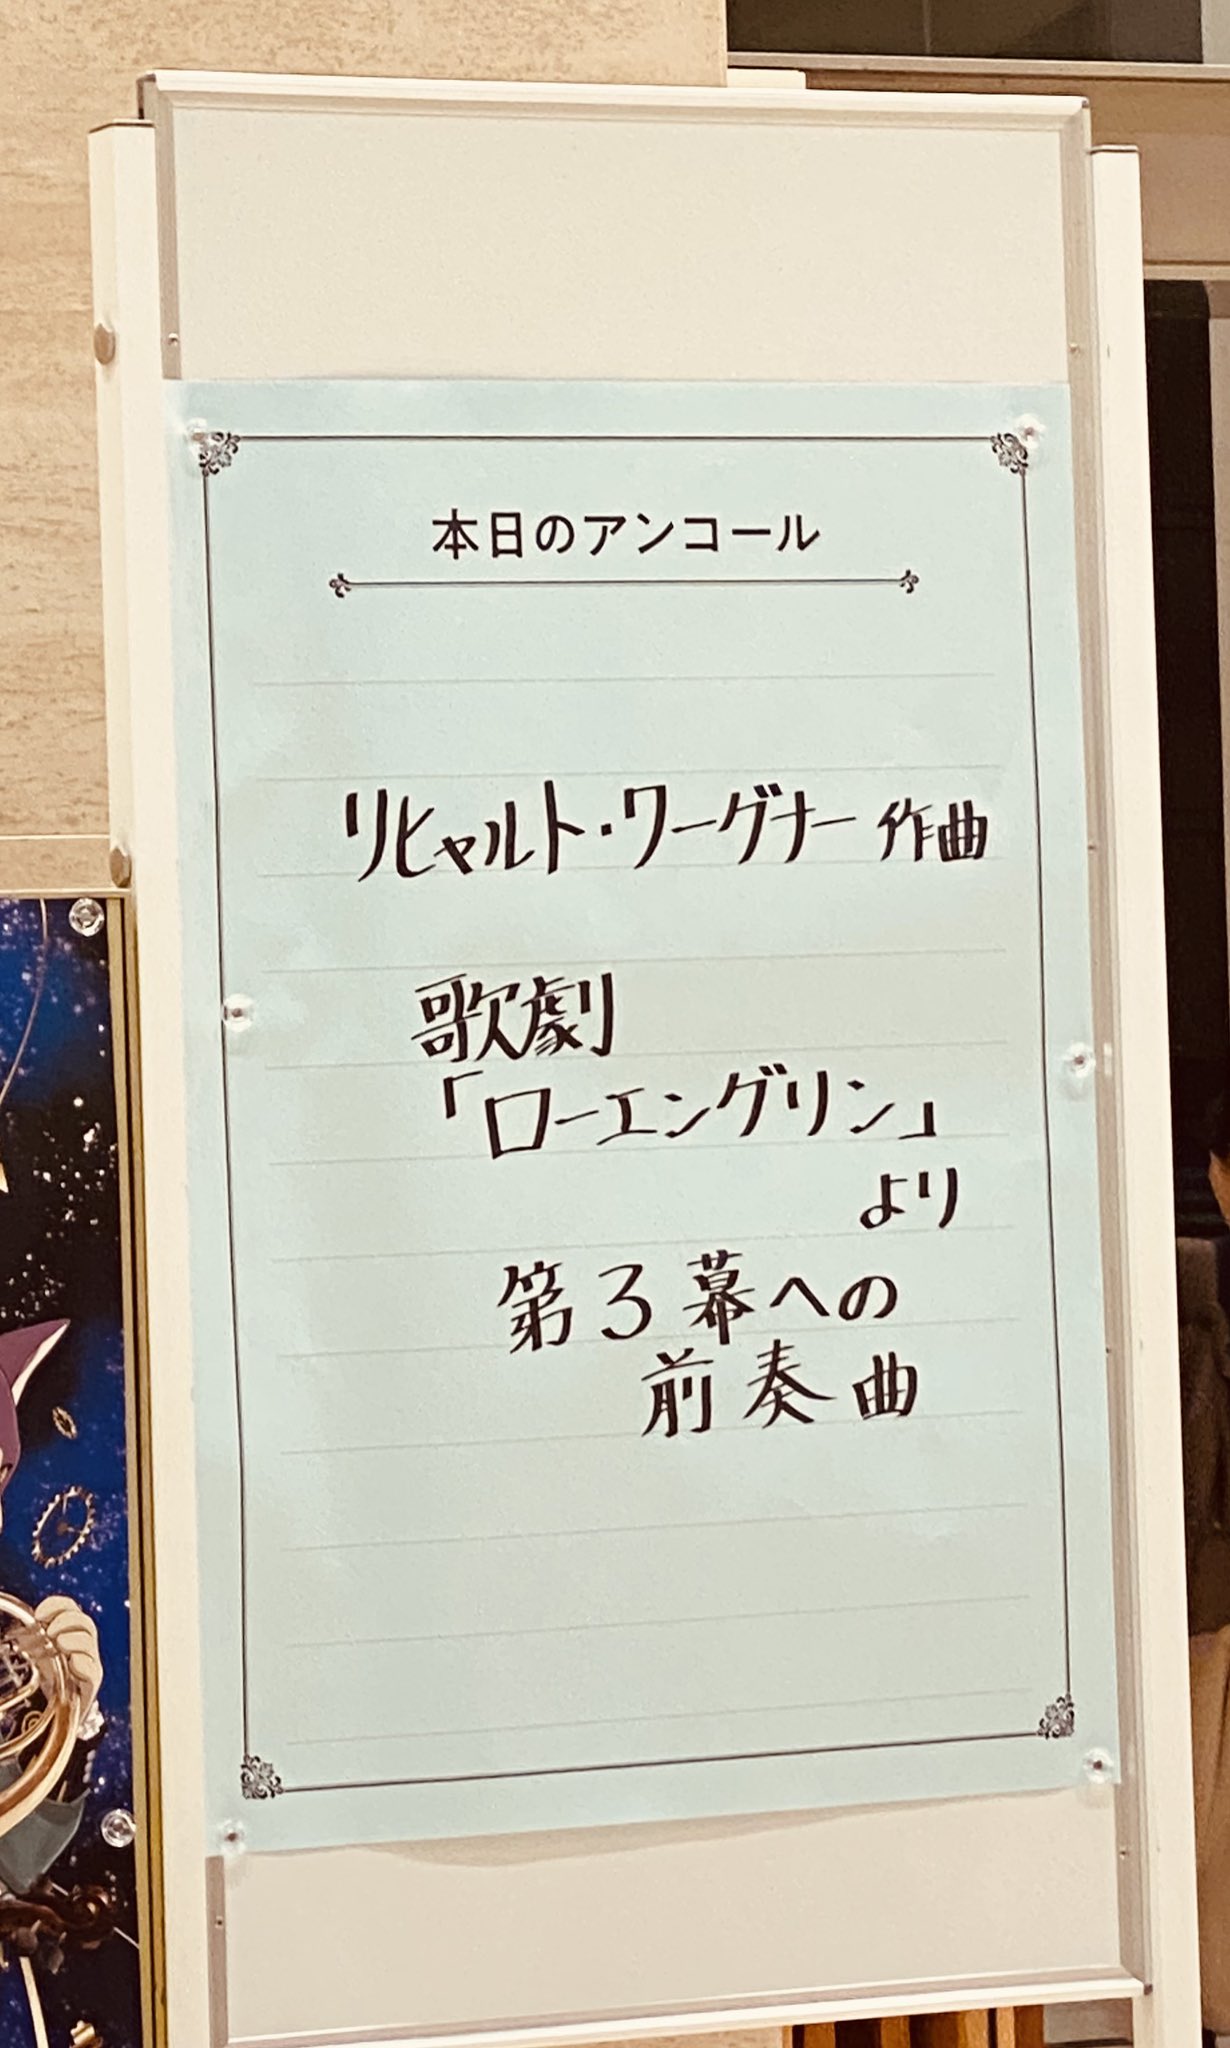 本日のアンコール
リヒャルト・ワーグナー 作曲
歌劇
「ローエングリン」
より
第3幕への
前奏曲